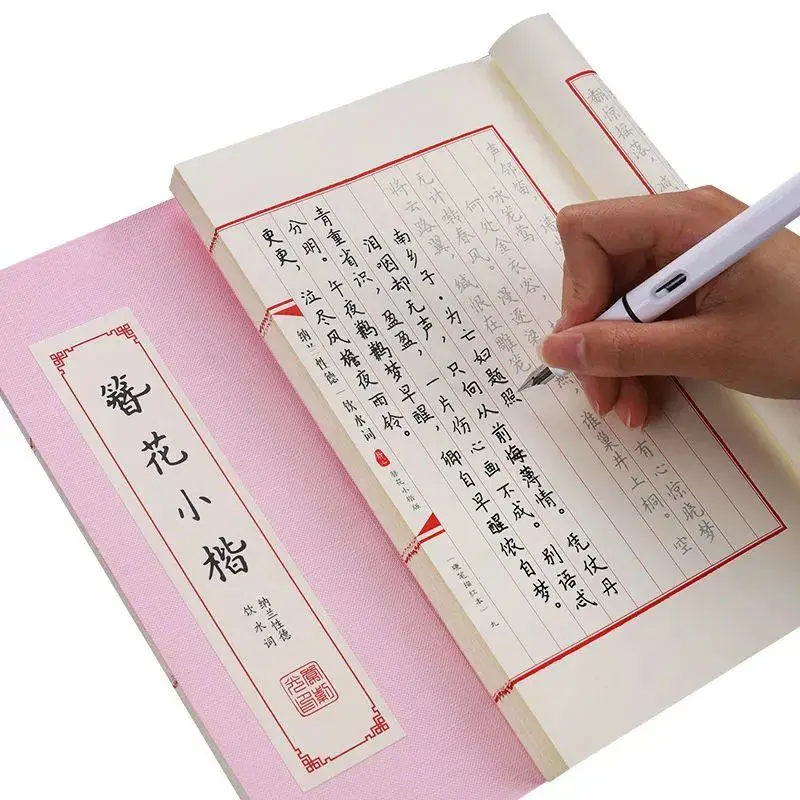 翻惊摇落,减
声邻笛,
咏笼莺
何处金衣客,
有心惊晓梦
无计啭春风。漫逐梁
谁巢井上桐。空
将云路翼,缄恨在雕笼
南乡子·为亡妇题照
泪咽却无声,只向从前悔薄情。凭仗丹
青重省识,盈盈,一片伤心画不成。别语忒
分明。午夜鹣鹣梦早醒,卿自早醒侬自梦。
更更,泣尽风檐夜雨铃。
纳兰性德|饮水词
簪花小楷版
「硬笔描红本」九
簪花小楷
纳兰性德
饮水词